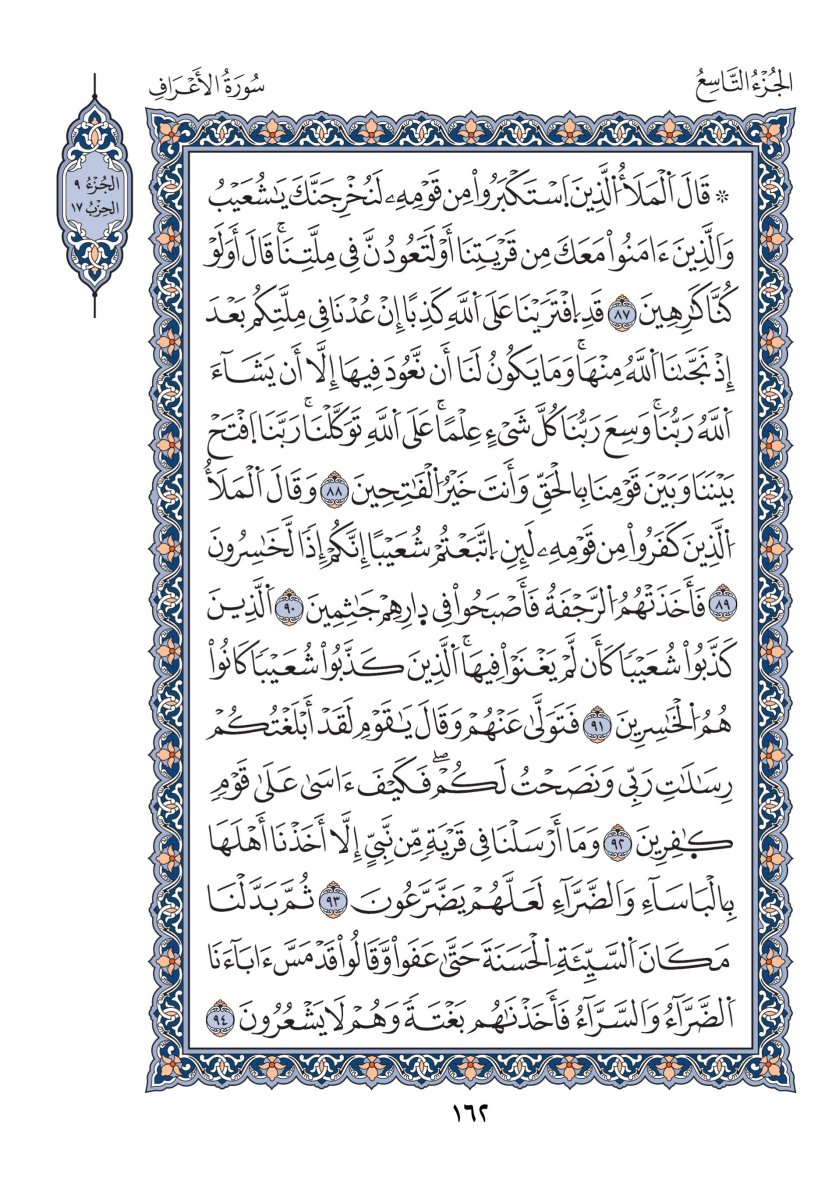 الجُزْءُ التَّاسِعُ
سُورَةُ الأَعْرَافِ
الجُزْءُ ٩
الحِزْبُ ١٧
۞ قَالَ اَلْمَلَأُ اُلَّذِينَ اَسْتَكْبَرُواْ مِن قَوْمِهِۦ لَنُخْرِجَنَّكَ يَٰشُعَيْبُ
وَالَّذِينَ ءَامَنُواْ مَعَكَ مِن قَرْيَتِنَا أَوْ لَتَعُودُنَّ فِي مِلَّتِنَاۚ قَالَ أَوَلَوْ
كُنَّا كَٰرِهِينَ ٨٧ قَدِ اِفْتَرَيْنَا عَلَى اَللَّهِ كَذِبًا إِنْ عُدْنَا فِي مِلَّتِكُم بَعْدَ
إِذْ نَجَّىٰنَا اَللَّهُ مِنْهَاۚ وَمَا يَكُونُ لَنَا أَن نَّعُودَ فِيهَا إِلَّا أَن يَشَآءَ
اَللَّهُ رَبُّنَاۚ وَسِعَ رَبُّنَا كُلَّ شَيْءٍ عِلْمًاۚ عَلَى اَللَّهِ تَوَكَّلْنَاۚ رَبَّنَا اَفْتَحْ
بَيْنَنَا وَبَيْنَ قَوْمِنَا بِالْحَقِّ وَأَنتَ خَيْرُ اُلْفَٰتِحِينَ ٨٨ وَقَالَ اَلْمَلَأُ
اُلَّذِينَ كَفَرُواْ مِن قَوْمِهِۦ لَئِنِ اِتَّبَعْتُمْ شُعَيْبًا إِنَّكُمْ إِذًا لَّخَٰسِرُونَ
٨٩ فَأَخَذَتْهُمُ اُلرَّجْفَةُ فَأَصْبَحُواْ فِي دِارِهِمْ جَٰثِمِينَ ٩٠ اَلَّذِينَ
كَذَّبُواْ شُعَيْبًا كَأَن لَّمْ يَغْنَوْاْ فِيهَاۚ اَلَّذِينَ كَذَّبُواْ شُعَيْبًا كَانُواْ
هُمُ اُلْخَٰسِرِينَ ٩١ فَتَوَلَّىٰ عَنْهُمْ وَقَالَ يَٰقَوْمِ لَقَدْ أَبْلَغْتُكُمْ
رِسَٰلَٰتِ رَبِّي وَنَصَحْتُ لَكُمْۖ فَكَيْفَ ءَاسَىٰ عَلَىٰ قَوْمٍ
كٰ۪فِرِينَ ٩٢ وَمَا أَرْسَلْنَا فِي قَرْيَةٍ مِّن نَّبِيٍّ إِلَّا أَخَذْنَا أَهْلَهَا
بِالْبَاسَآءِ وَالضَّرَّآءِ لَعَلَّهُمْ يَضَّرَّعُونَ ٩٣ ثُمَّ بَدَّلْنَا
مَكَانَ اَلسَّيِّئَةِ اِلْحَسَنَةَ حَتَّىٰ عَفَواْ وَّقَالُواْ قَدْ مَسَّ ءَابَآءَنَا
اَلضَّرَّآءُ وَالسَّرَّآءُ فَأَخَذْنَٰهُم بَغْتَةً وَهُمْ لَا يَشْعُرُونَ ٩٤
١٦٢